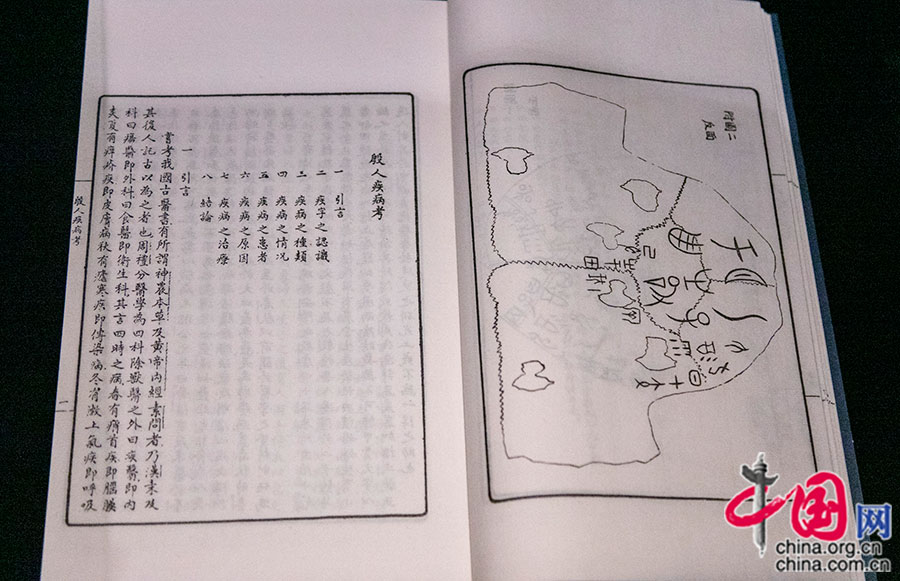 附圖二
反面
殷人疾病考
一 引言
二 疾字之認識
三 疾病之種類
四 疾病之情況
五 疾病之患者
六 疾病之原因
七 疾病之治療
八 結論
一 引言
嘗考我國古醫書有所謂神農本草及黃帝內經素問者乃漢末及
其後人託古以為之者也周禮分醫學為四科除獸醫之外曰疾醫即內
科曰瘍醫即外科曰食醫即衛生科其言四時之病春有痟首疾即腦膜
炎夏有痒疥疾即皮膚病秋有瘧寒疾即傳染病冬有漱上氣疾即呼吸
殷人疾病考
中国网
china.org.cn
china.com.cn